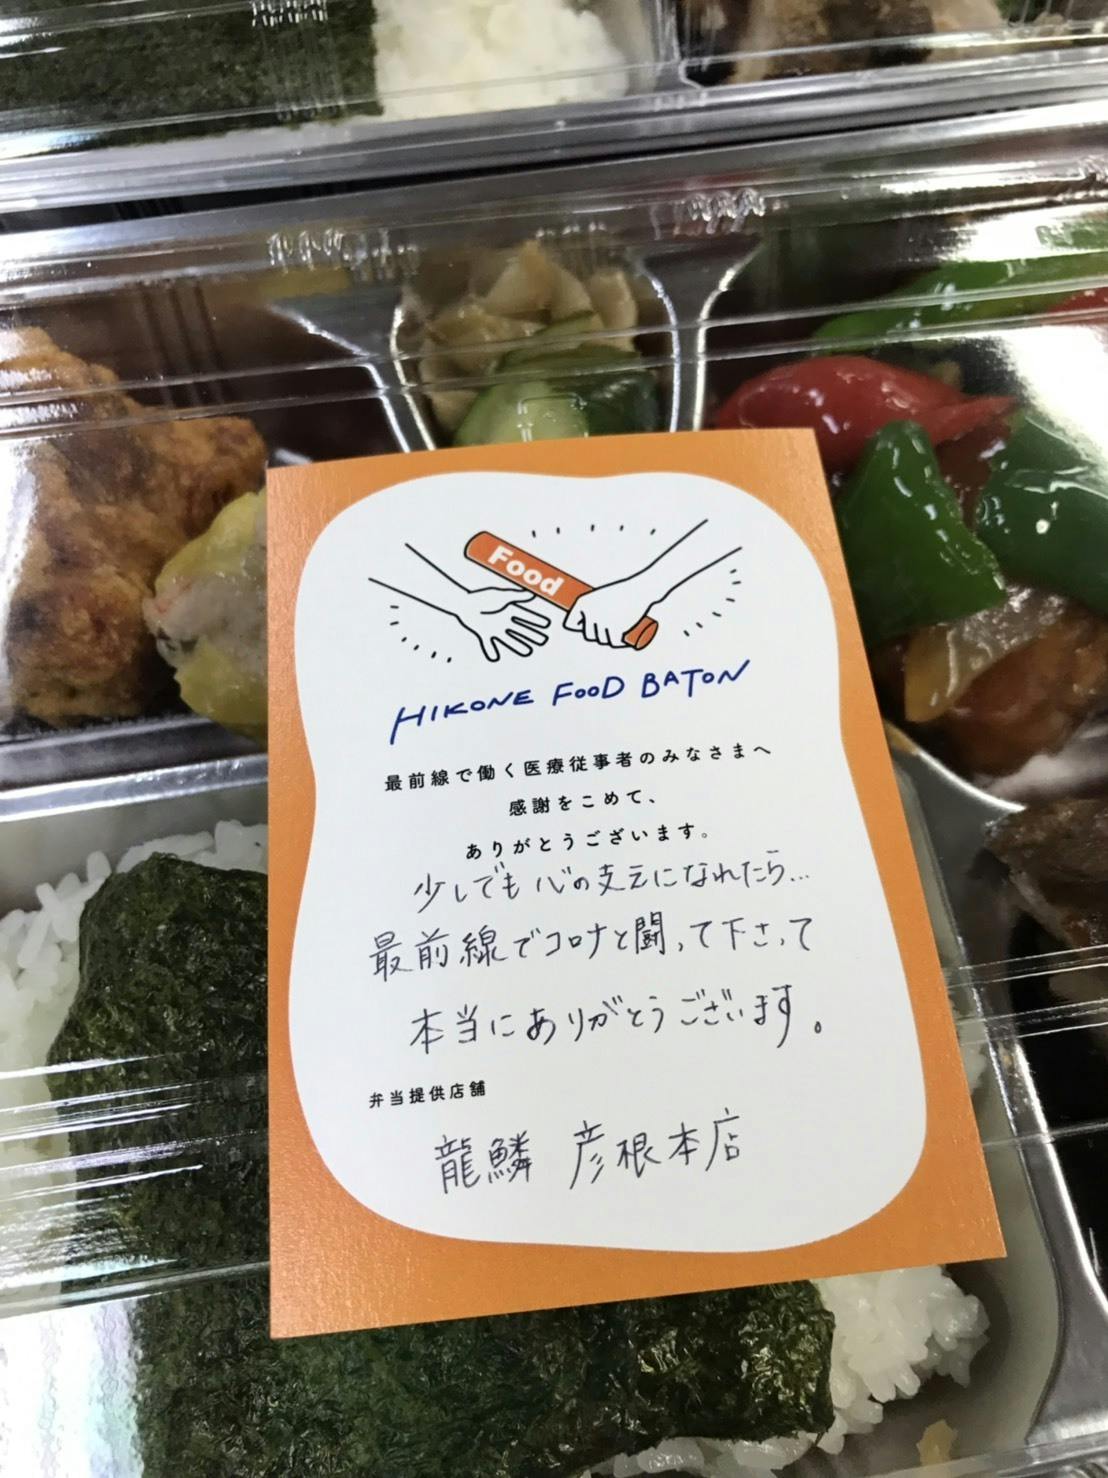 Food
HIKONE FOOD BATON
最前線で働く医療従事者のみなさまへ
感謝をこめて、
ありがとうございます。
少しでも心の支えになれたら...
最前線でコロナと闘って下さって
本当にありがとうございます。
弁当提供店舗
龍鱗 彦根本店